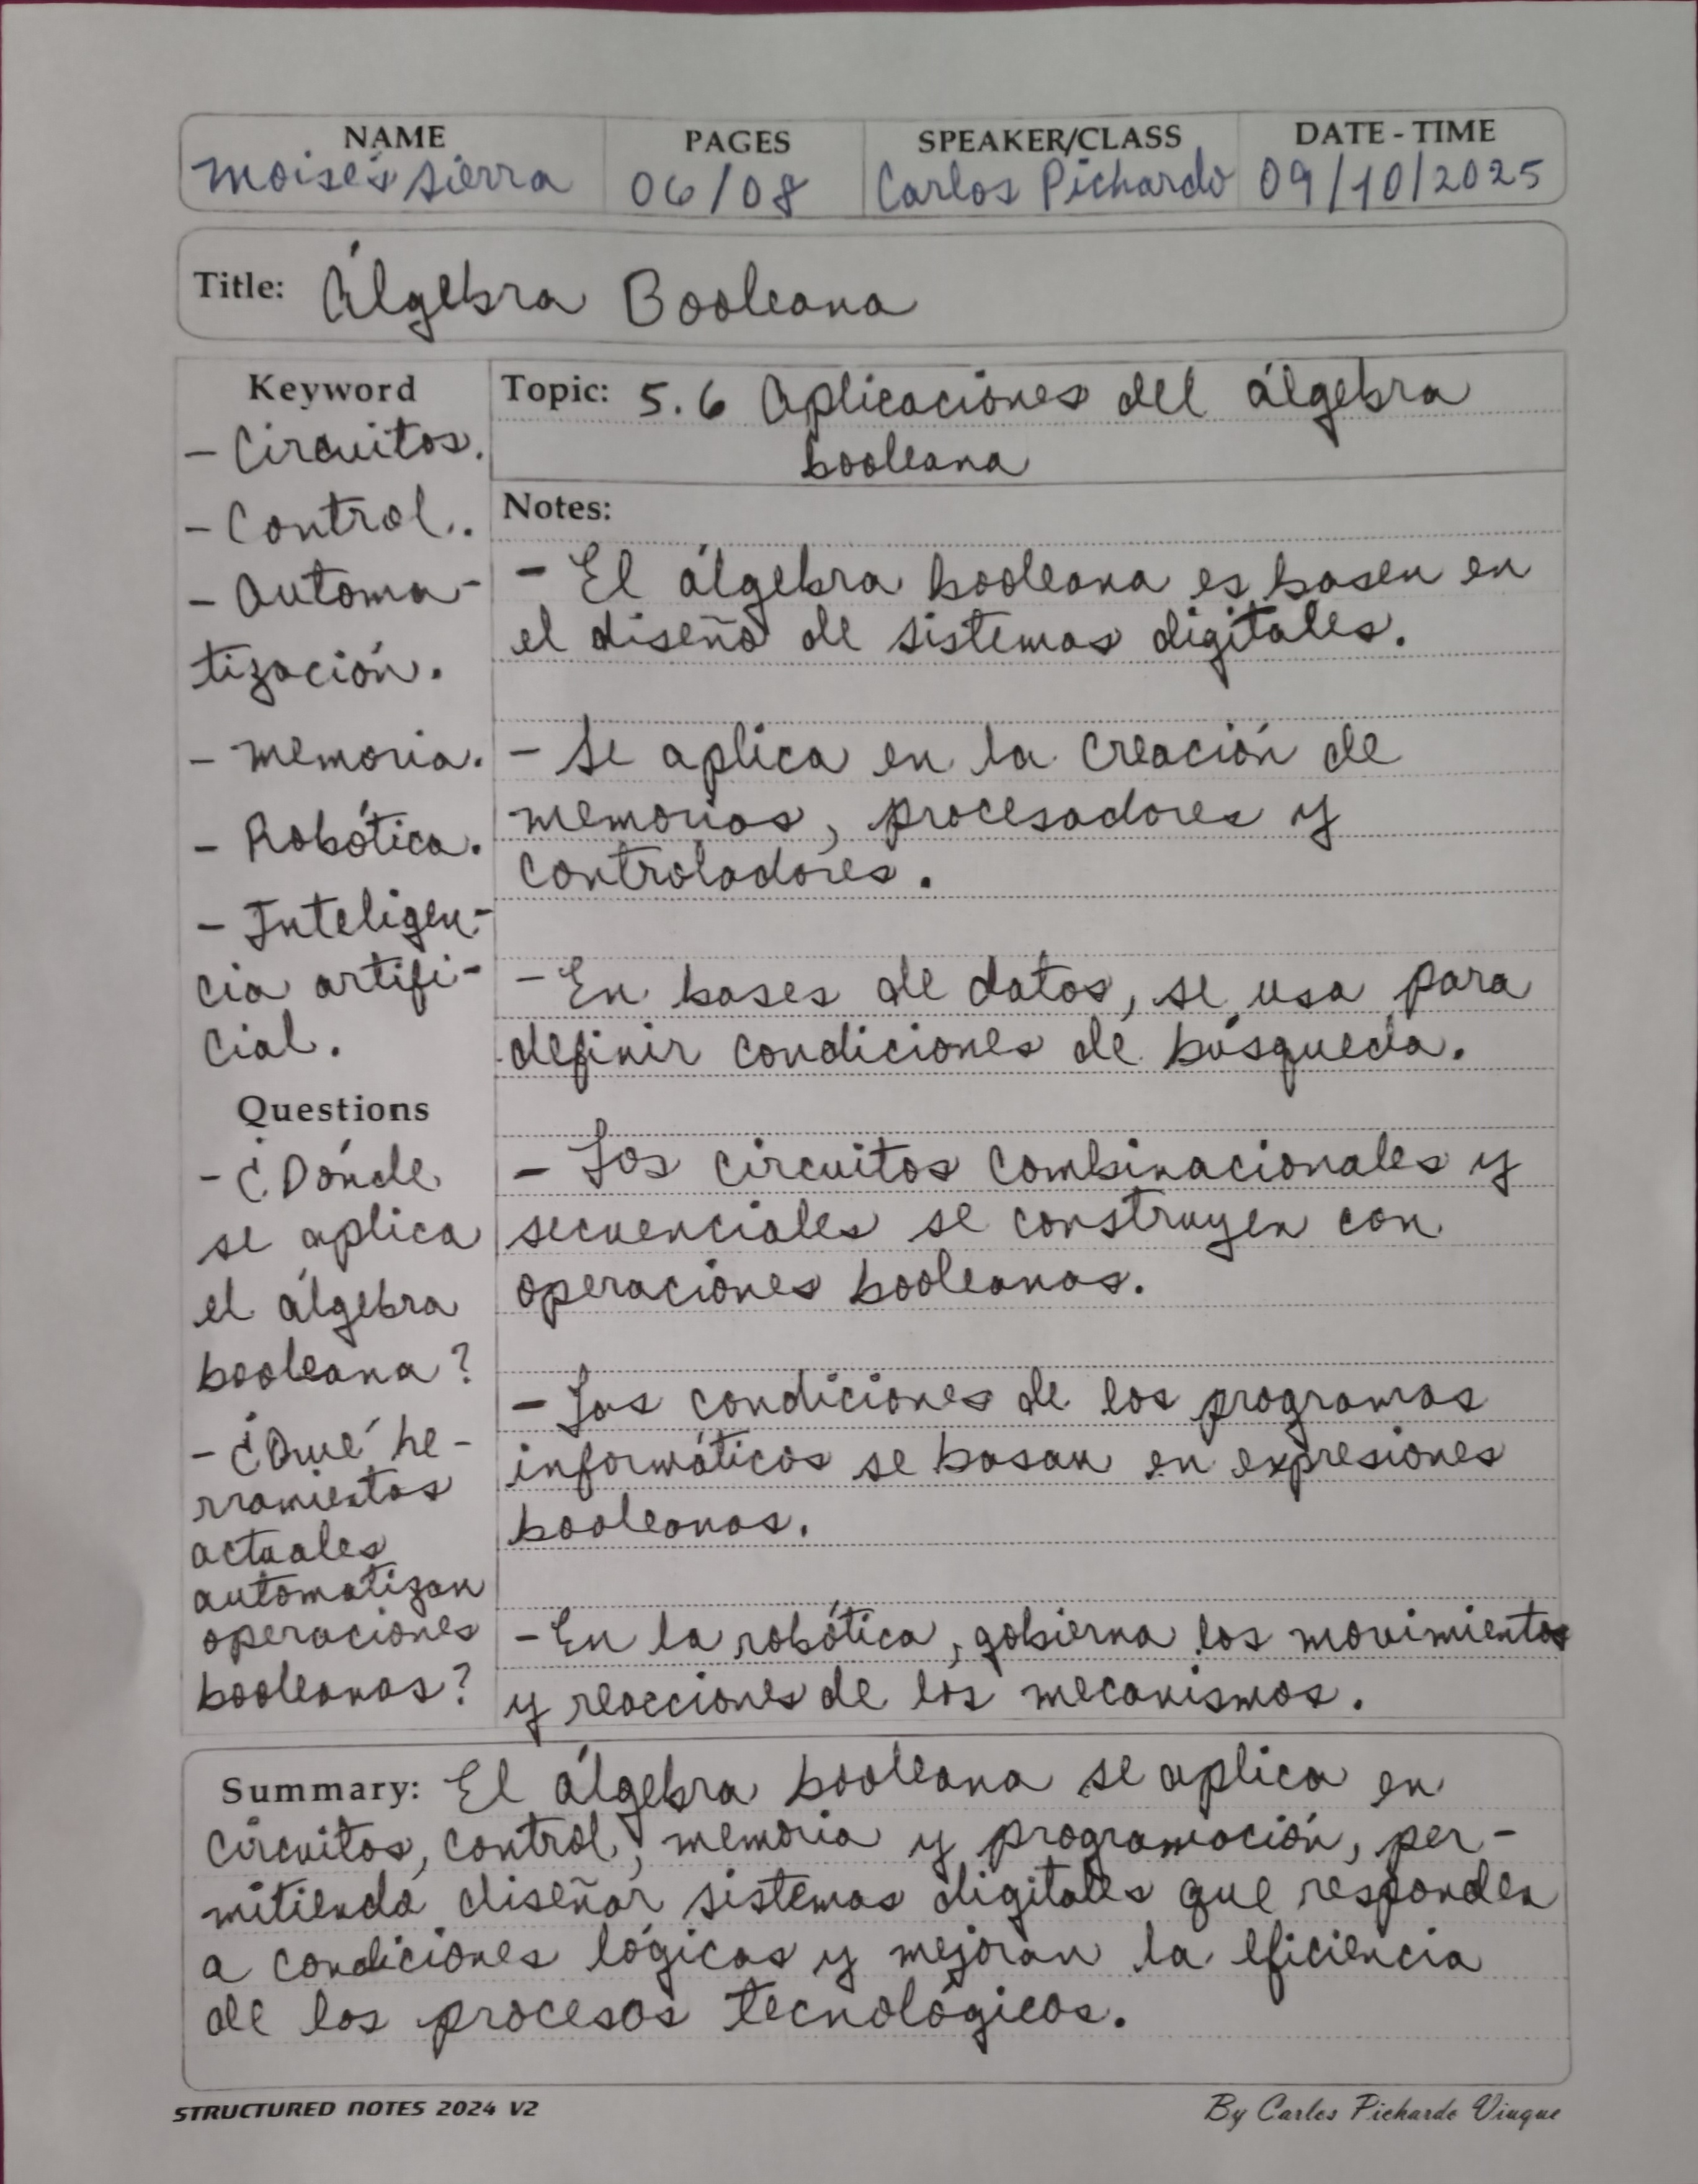 NAME PAGES SPEAKER/CLASS DATE - TIME
Moisés Sierra 06/08 Carlos Pichardo 09/10/2025
Title: Álgebra Booleana
Keyword
- Circuitos.
- Control..
- Automa-
tización.
- Memoria.
- Robótica.
- Inteligen-
cia artifi-
cial.
Questions
- ¿Dónde
se aplica
el álgebra
booleana?
- ¿Qué he-
rramientas
actuales
automatizan
operaciones
booleanas?
Topic: 5.6 Aplicaciones del álgebra
booleana
Notes:
- El álgebra booleana es basen en
el diseño de sistemas digitales.
- Se aplica en la creación de
memorias, procesadores y
controladores.
- En bases de datos, se usa para
definir condiciones de búsqueda.
- Los circuitos combinacionales y
secuenciales se construyen con
operaciones booleanas.
- Las condiciones de los programas
informáticos se basan en expresiones
booleanas.
- En la robótica, gobierna los movimientos
y reacciones de los mecanismos.
Summary: El álgebra booleana se aplica en
circuitos, control, memoria y programación, per-
mitiendo diseñar sistemas digitales que responden
a condiciones lógicas y mejoran la eficiencia
de los procesos tecnológicos.
STRUCTURED NOTES 2024 V2 By Carlos Pichardo Viuque